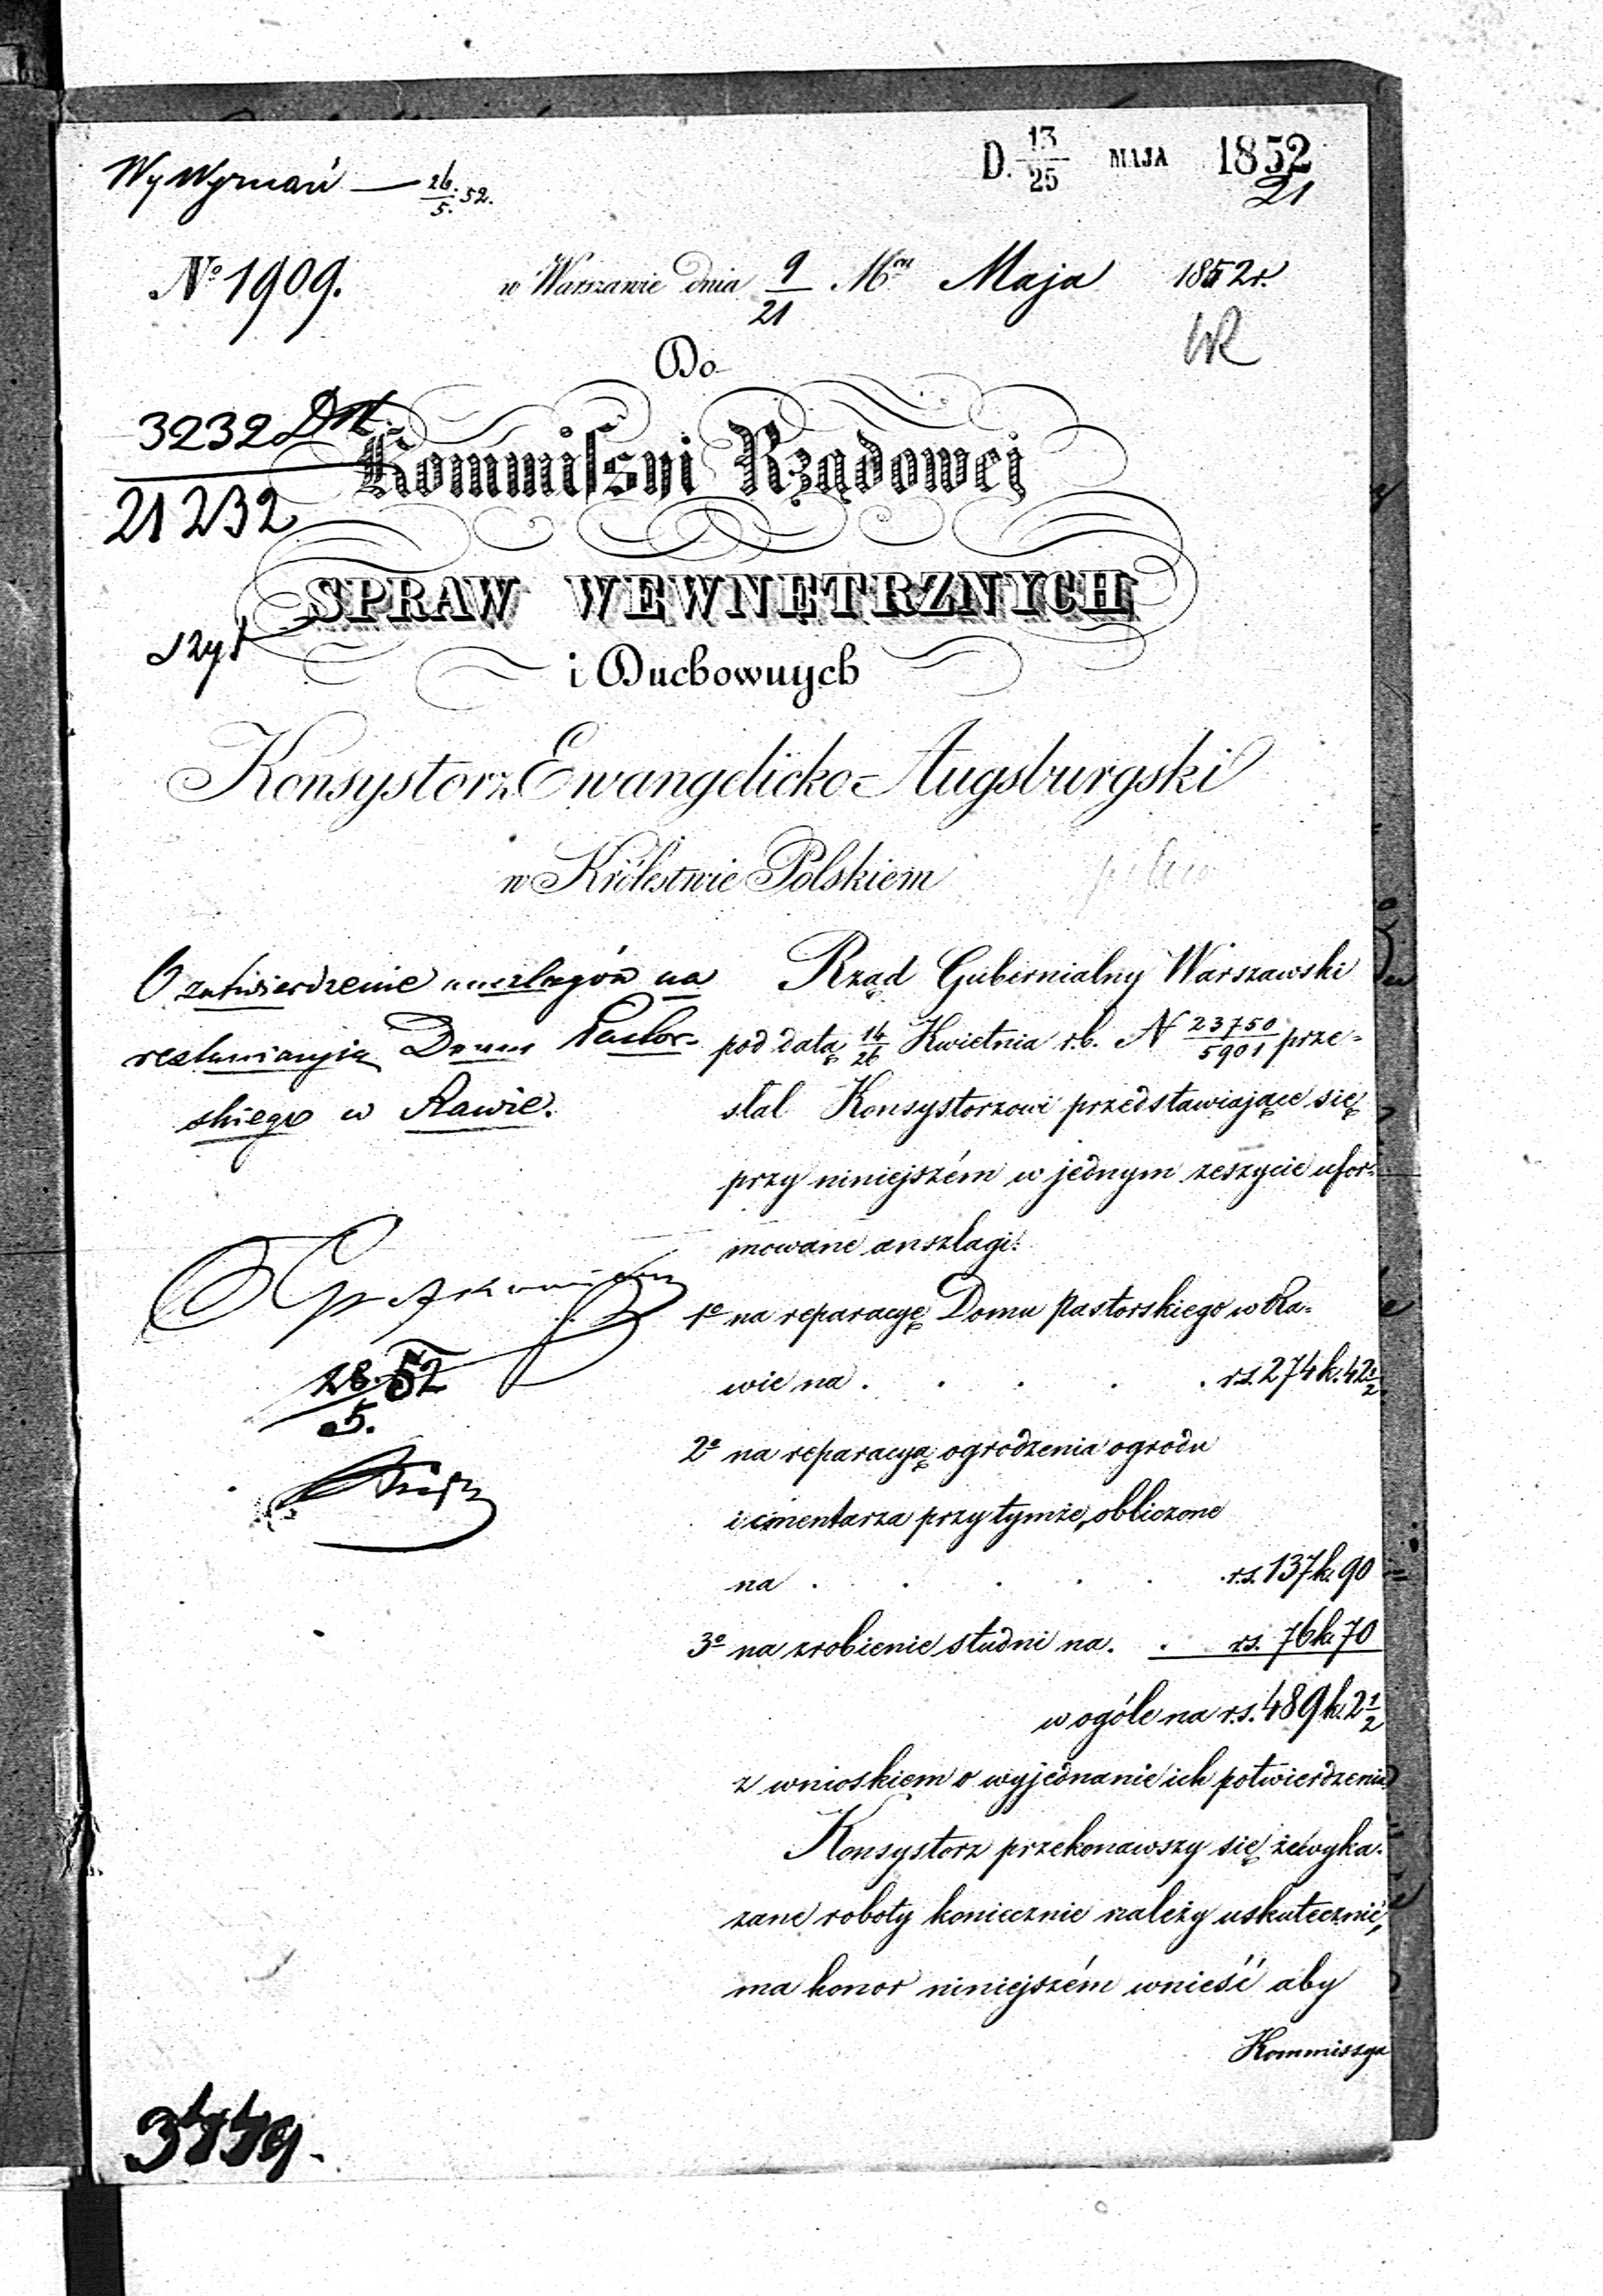 Wy Wyznań — 26/5. 52.
D. 13/25 MAJA 1852
21
No 1909.
w Warszawie dnia 9/21 Mca Maja 1852 r.
WR
Do
3232
21232
Kommissyi Rządowej
SPRAW WEWNĘTRZNYCH
i Duchownych
Konsystorz Ewangelicko-Augsburgski
w Królestwie Polskiem
O zatwierdzenie anszlagów na
restauracyją Domu Pastor-
skiego w Rawie.
28/5. 52
Rząd Gubernialny Warszawski
pod datą 14/26 Kwietnia r.b. N 23750/5901 prze-
słał Konsystorzowi przedstawiające się
przy niniejszém w jednym zeszycie ufor-
mowane anszlagi:
1o na reparacyę Domu Pastorskiego w Ra-
wie na . . . . . rs. 274 k. 42 1/2
2o na reparacyą ogrodzenia ogrodu
i cmentarza przy tymże, obliczone
na . . . . . rs. 137 k. 90
3o na zrobienie studni na . . rs. 76 k. 70
w ogóle na rs. 489 k. 2 1/2
z wnioskiem o wyjednanie ich potwierdzenia
Konsystorz przekonawszy się że wyka-
zane roboty koniecznie należy uskutecznić,
ma honor niniejszém wnieść aby
Kommissya
3449.